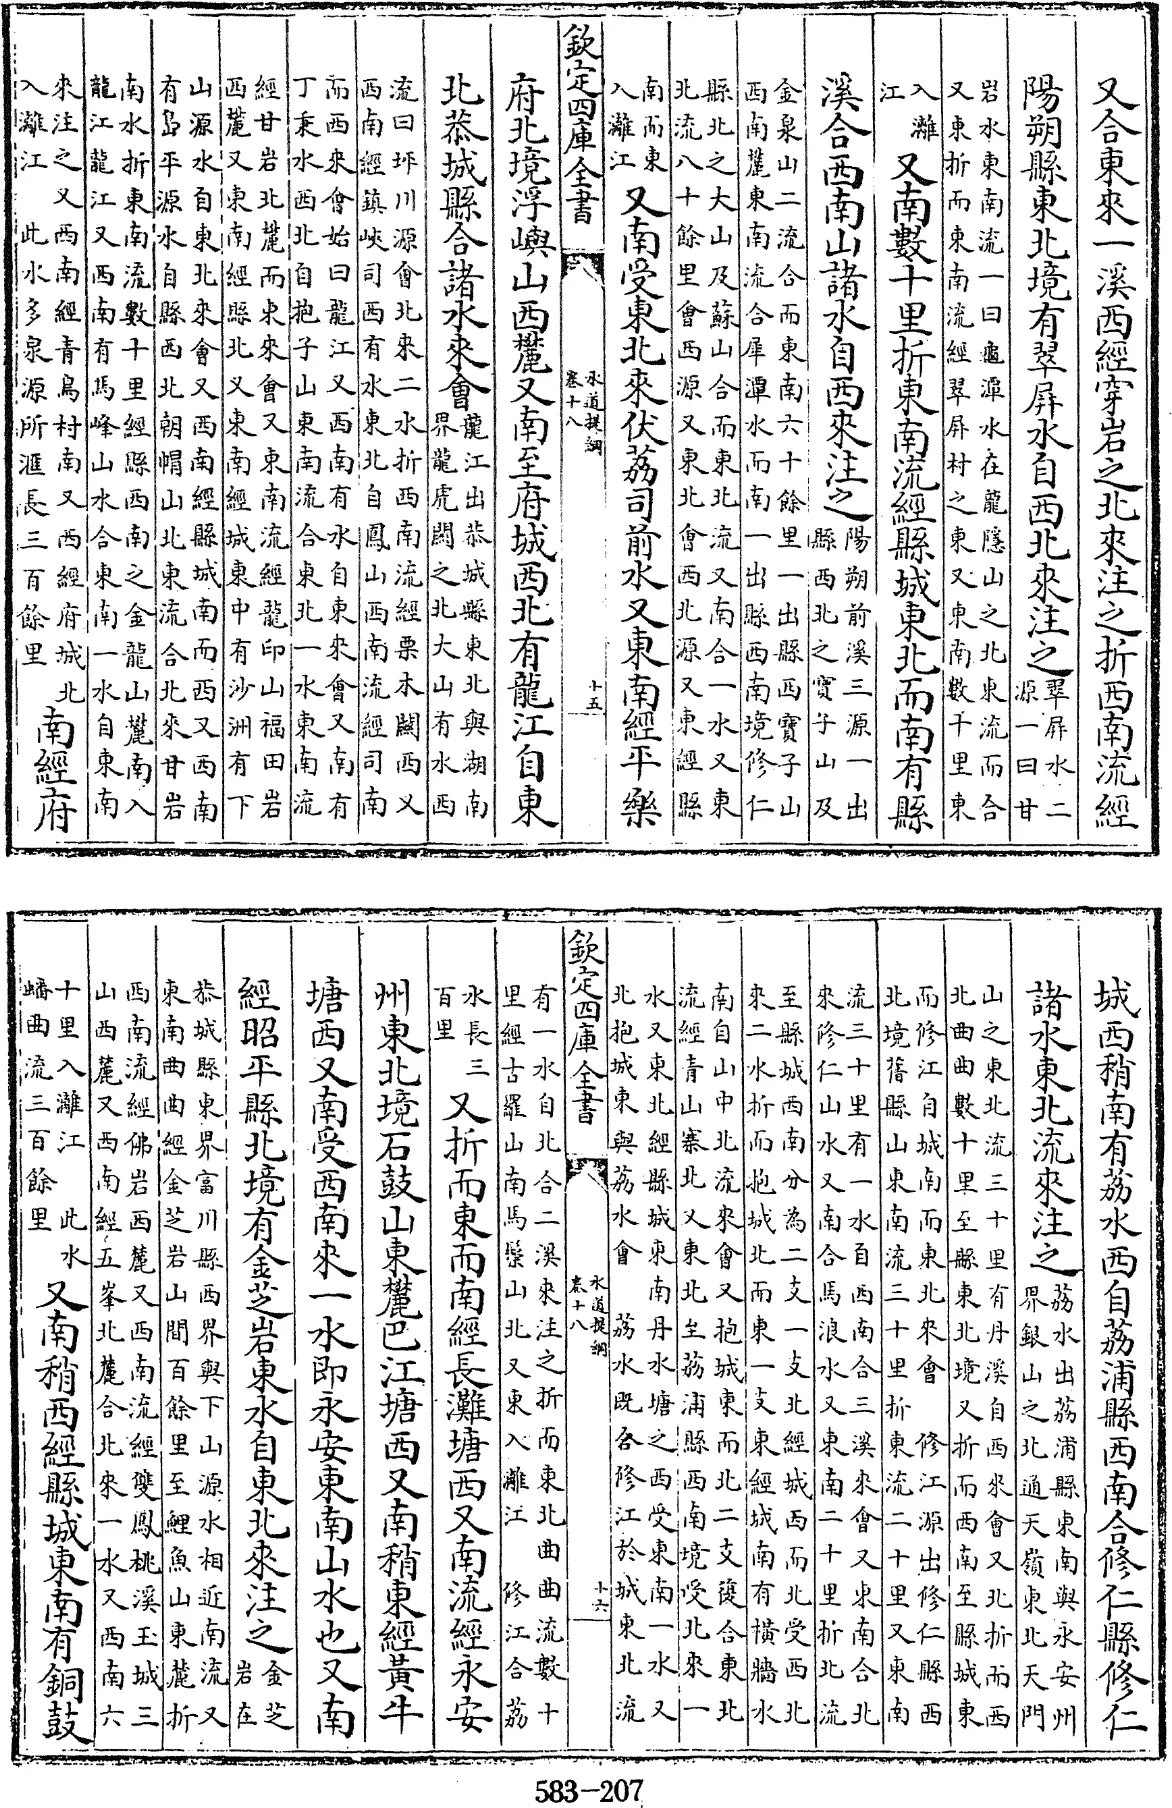 又合東來一溪西經穿岩之北來注之折西南流經
陽朔縣東北境有翠屏水自西北來注之翠屏水二
源一曰甘
岩水東南流一曰龜潭水在龍隱山之北東流而合
又東折而東南流經翠屏村之東又東南數千里東
入灕
江 又南數十里折東南流經縣城東北而南有縣
溪合西南山諸水自西來注之陽朔前溪三源一出
縣西北之寶子山及
金泉山二流合而東南六十餘里一出縣西寶子山
西南麓東南流合犀潭水而南一出縣西南境修仁
縣北之大山及蘇山合而東北流又南合一水又東
北流八十餘里會西源又東北會西北源又東經縣
南而東
入灕江 又南受東北來伏荔司前水又東南經平樂
欽定四庫全書
水道提綱
卷十八
十五
府北境浮嶼山西麓又南至府城西北有龍江自東
北恭城縣合諸水來會龍江出恭城縣東北與湖南
界龍虎關之北大山有水西
流曰坪川源會北來二水折西南流經票木關西又
西南經鎮峽司西有水東北自鳳山西南流經司南
而西來會始曰龍江又西南有水自東來會又南有
丁東水西北自抱子山東南流合東北一水東南流
經甘岩北麓而東來會又東南流經龍印山福田岩
西麓又東南經縣北又東南經城東中有沙洲有下
山源水自東北來會又西南經縣城南而西又西南
有島平源水自縣西北朝帽山北東流合北來甘岩
南水折東南流數十里經縣西南之金龍山麓南入
龍江龍江又西南有馬峰山水合東南一水自東南
來注之又西南經青烏村南又西經府城北
入灕江 此水多泉源所滙長三百餘里 南經府
城西稍南有荔水西自荔浦縣西南合修仁縣修仁
諸水東北流來注之荔水出荔浦縣東南與永安州
界銀山之北通天嶺東北天門
山之東北流三十里有丹溪自西來會又北折而西
北曲曲數十里至縣東北境又折而西南至縣城東
而修江自城南而東北來會 修江源出修仁縣西
北境舊縣山東南流三十里折東流二十里又東南
流三十里有一水自西南合三溪來會又東南合北
來修仁山水又南合馬浪水又東南二十里折北流
至縣城西南分為二支一支北經城西而北受西北
來二水折而抱城北而東一支東經城南有橫牆水
南自山中北流來會又抱城東而北二支復合東北
流經青山寨北又東北至荔浦縣西南境受北來一
水又東北經縣城東南丹水塘之西受東南一水又
北抱城東與荔水會 荔水既合修江於城東北流
欽定四庫全書
水道提綱
卷十八
十六
有一水自北合二溪來注之折而東北曲曲流數十
里經古羅山南馬鬃山北又東入灕江 修江合荔
水長三
百里 又折而東而南經長灘塘西又南流經永安
州東北境石鼓山東麓巴江塘西又南稍東經黃牛
塘西又南受西南來一水即永安東南山水也又南
經昭平縣北境有金芝岩東水自東北來注之金芝
岩在
恭城縣東界富川縣西界與下山源水相近南流又
東南曲曲經金芝岩山間百餘里至鯉魚山東麓折
西南流經佛岩西麓又西南流經雙鳳桃溪玉城三
山西麓又西南經五峯北麓合北來一水又西南六
十里入灕江 此水
蟠曲流三百餘里 又南稍西經縣城東南有銅鼓
583-207